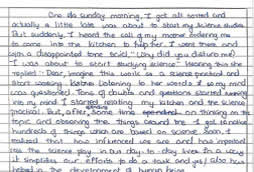 One da sunday morning, I get all sorted and
actually a little late was about to start my science studies.
But suddenly, I heard the call of my mother ordering me
to come into the kitchen to help her. I went there and
with a disappointed tone said, "Why did you disturb me?
I was about to start studying science". Hearing this she
replied: "Dear, imagine this work as a science practical and
start working. After listening to her words I my mind
was questioned. Tons of doubts and questions started running
into my mind. I started relating my kitchen and the science
practical. But, after some time spending on thinking on the
topic and observing the things around me. I got to notice
hundreds of things which are based on science. Soon, I
realized that how influenced we are and how important
has the science play in our day to day lives in a way
it simplifies our efforts to do a task and yes, also has
helped in the development of human being